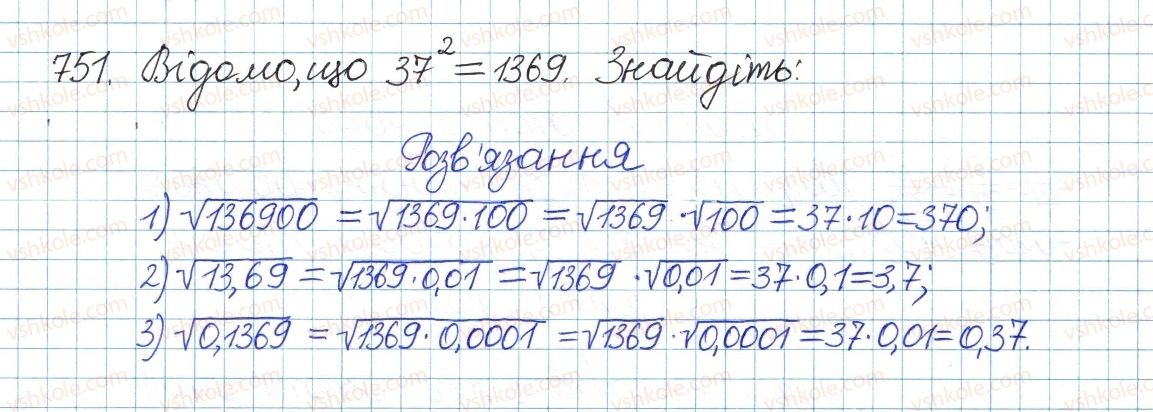 751. Відомо, що 37² = 1369. Знайдіть:
Розв'язання
1) √136900 = √1369·100 = √1369 · √100 = 37·10 = 370;
2) √13,69 = √1369·0,01 = √1369 · √0,01 = 37·0,1 = 3,7;
3) √0,1369 = √1369·0,0001 = √1369 · √0,0001 = 37·0,01 = 0,37.